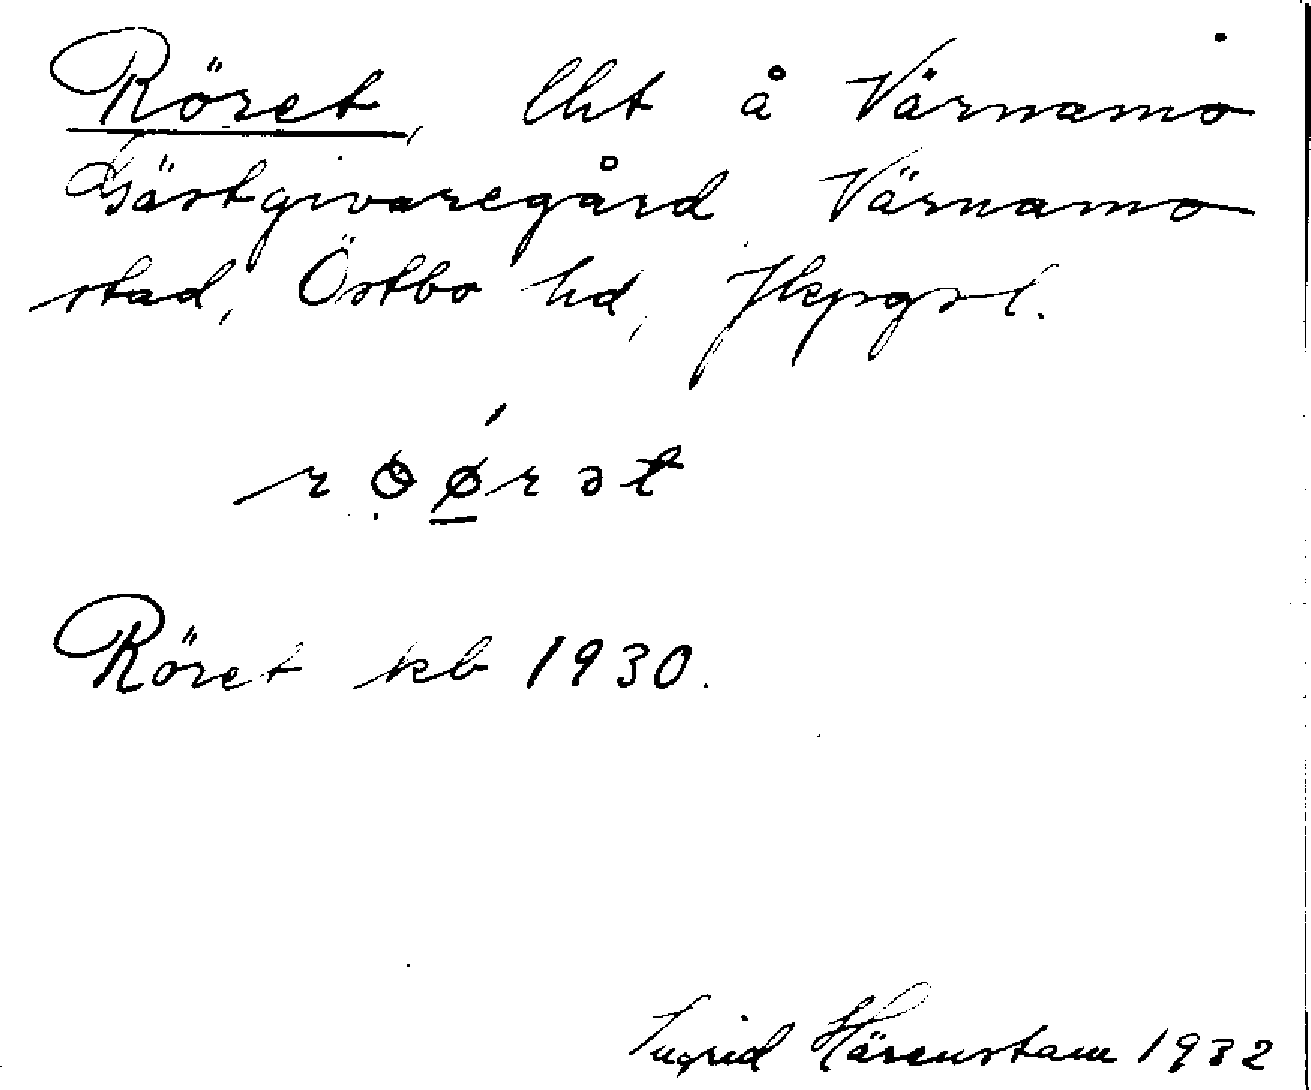 Röret, lht å Värnamo
Gästgivaregård Värnamo
stad, Östbo hd, Jkpgsl.
rɵǿrət
Röret kb 1930.
Ingrid Härenstam 1932